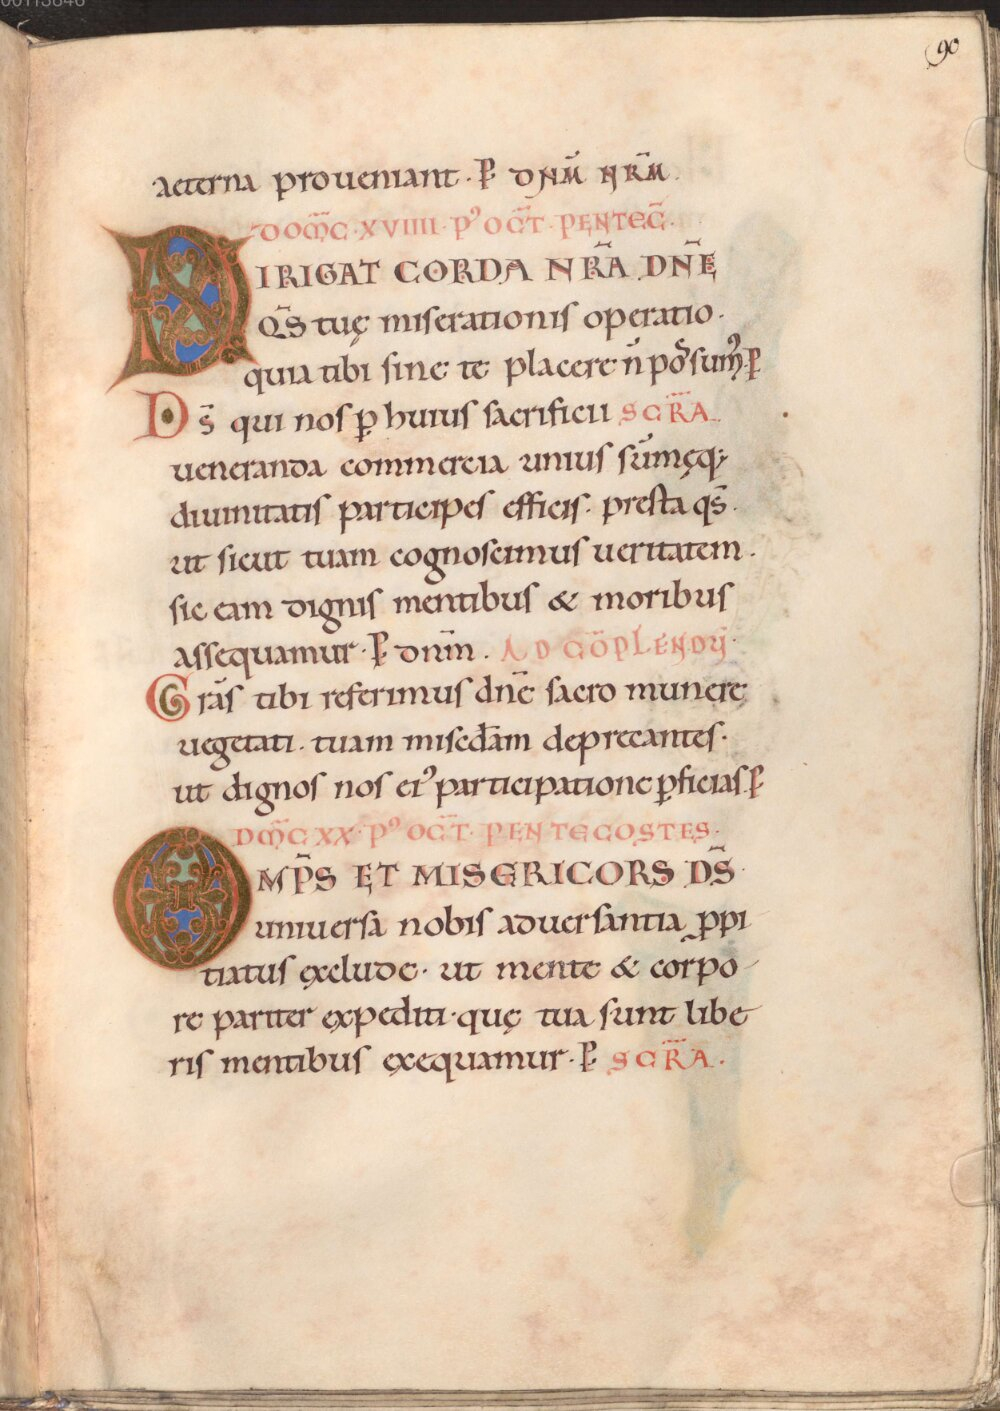 90
aeterna proueniant. P̄ DN̄M NR̄M.
DOM̄C XVIIII P' OCT̄ PENTEC̄.
DIRIGAT CORDA NR̄A DN̄E
QS̄ tuę miserationis operatio.
quia tibi sine te placere n̄ possum'. P̄
Ds̄ qui nos ꝑ huius sacrificii SCR̄A.
ueneranda commercia unius sūmęq;
diuinitatis participes efficis. presta qs̄.
ut sicut tuam cognoscimus ueritatem.
sic eam dignis mentibus & moribus
assequamur. P̄ dnm̄. AD CŌPLENDŪ.
Grās tibi referimus dnē sacro munere
uegetati. tuam misēdam deprecantes.
ut dignos nos ei' participatione ꝑficias. P̄
DM̄C XX. P' OCT̄. PENTECOSTES.
OMP̄S ET MISERICORS DS̄
uniuersa nobis aduersantia ꝓpi
tiatus exclude. ut mente & corpo
re pariter expediti. quę tua sunt libe
ris mentibus exequamur. P̄ SCR̄A.